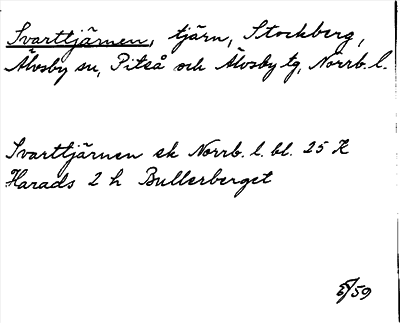 Svarttjärnen, tjärn, Stockberg,
Älvsby sn, Piteå och Älvsby tg, Norrb. l.
Svarttjärnen ek Norrb. l. bl. 25 K
Harads 2 h Bullerberget
/59